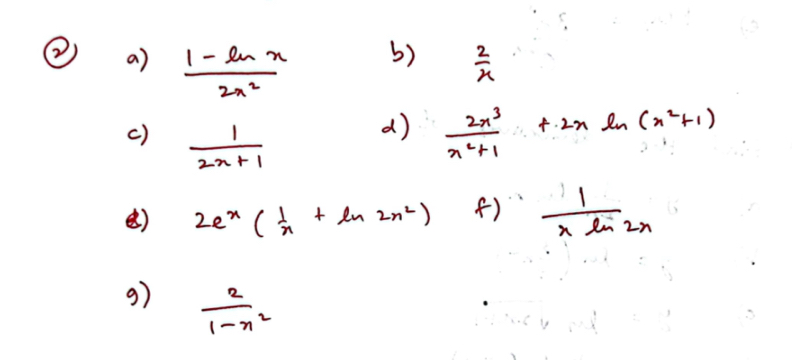 ② a) \frac{1 - ln x}{2x^2} b) \frac{2}{x}
c) \frac{1}{2x+1} d) \frac{2x^3}{x^2+1} + 2x ln (x^2+1)
e) 2e^x ( \frac{1}{x} + ln 2x^2 ) f) \frac{1}{x ln 2x}
g) \frac{2}{1-x^2}